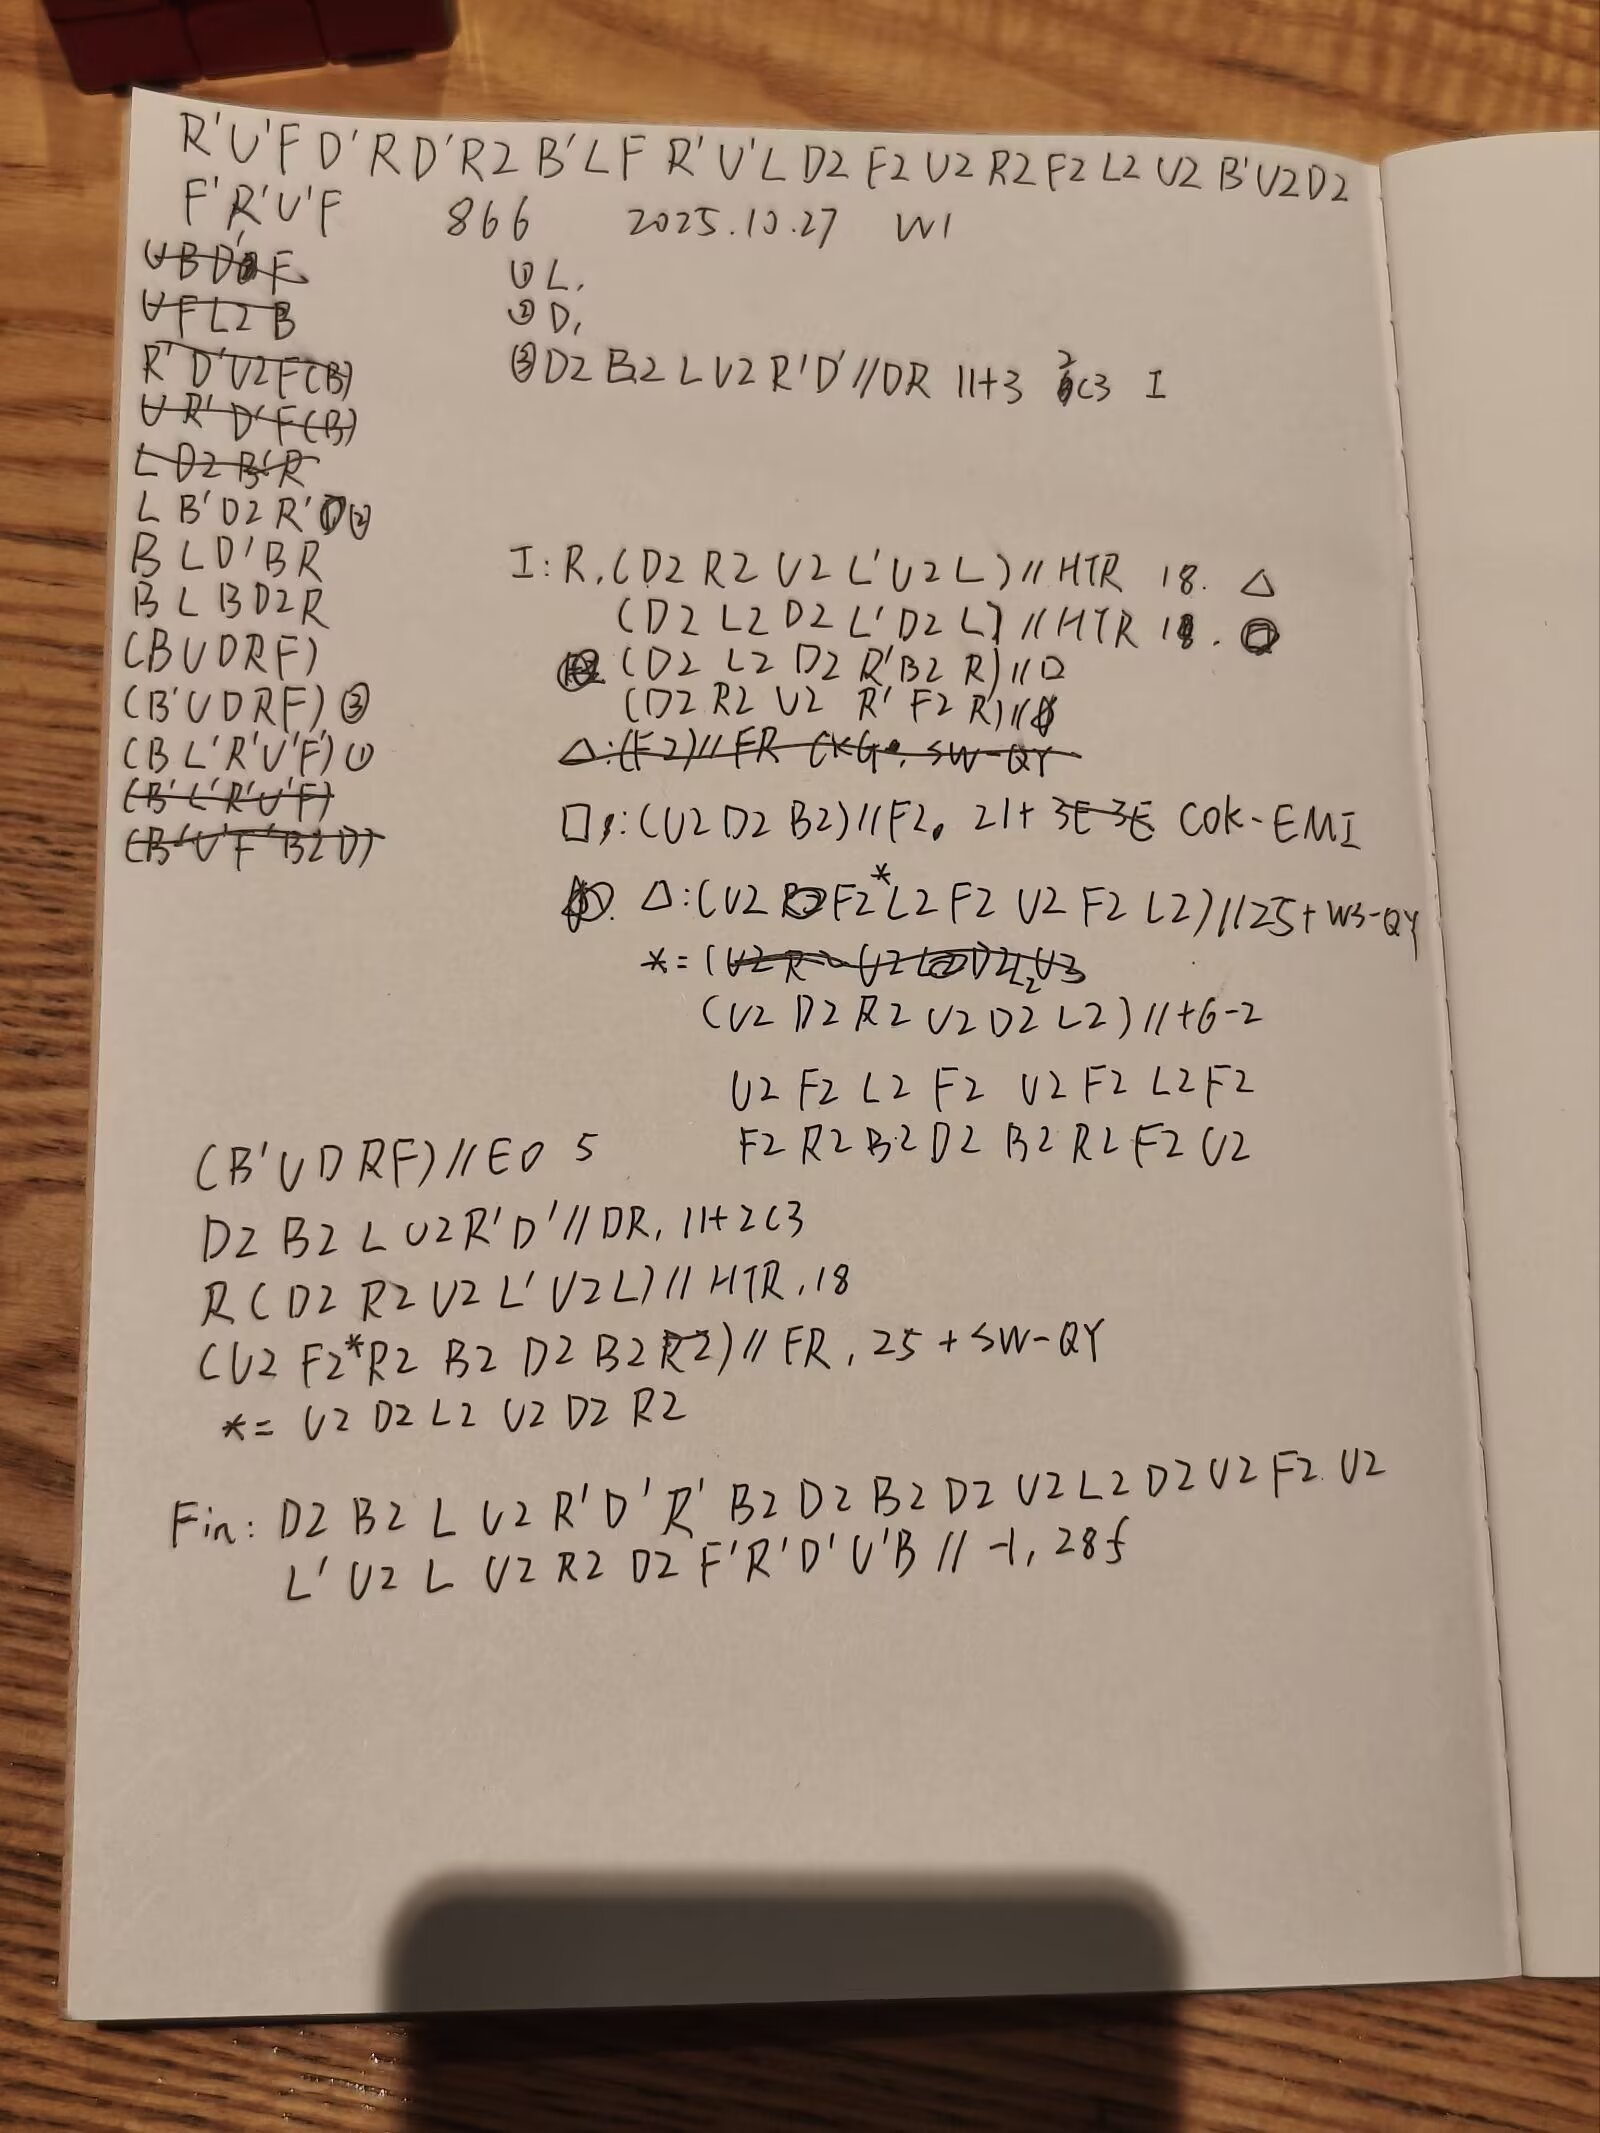 R'U'F D'R D'R2 B'LF R'U'L D2 F2 U2 R2 F2 L2 U2 B'U2D2
F'R'U'F 866 2025.10.27 W1
U B D' F
① L,
U F L2 B
② D,
R' D'U2F(B)
③ D2 B2 L U2 R'D' // DR 11+3 2c3 I
U R' D'F(B)
L D2 B'R
L B'D2 R' ②
B L D'B R
I: R, (D2 R2 U2 L'U2 L) // HTR 18. △
B L B D2R
(D2 L2 D2 L'D2 L) // HTR 18.
(B U D R F)
(D2 L2 D2 R'B2 R) // □
(B'U D R F) ③
(D2 R2 U2 R' F2 R) //
(B L'R'U'F') ①
△: (F2) // FR CKG. SW-QY
(B'L'R'U'F)
□: (U2 D2 B2) // F2. 21+ 3E 3E COK-EMI
(B'U'F'B2D)
△: (U2 F2*L2 F2 U2 F2 L2) // 25+ W3-QY
*= (
(U2 D2 R2 U2 D2 L2) // +6-2
U2 F2 L2 F2 U2 F2 L2 F2
F2 R2 B2 D2 B2 R2 F2 U2
(B'U D R F) // EO 5
D2 B2 L U2 R'D' // DR, 11+2C3
R ( D2 R2 U2 L' U2 L) // HTR, 18
(U2 F2*R2 B2 D2 B2 R2) // FR, 25 + SW-QY
*= U2 D2 L2 U2 D2 R2
Fin: D2 B2 L U2 R'D'R' B2 D2 B2 D2 U2 L2 D2 U2 F2 U2
L' U2 L U2 R2 D2 F'R'D'U'B // -1, 28f